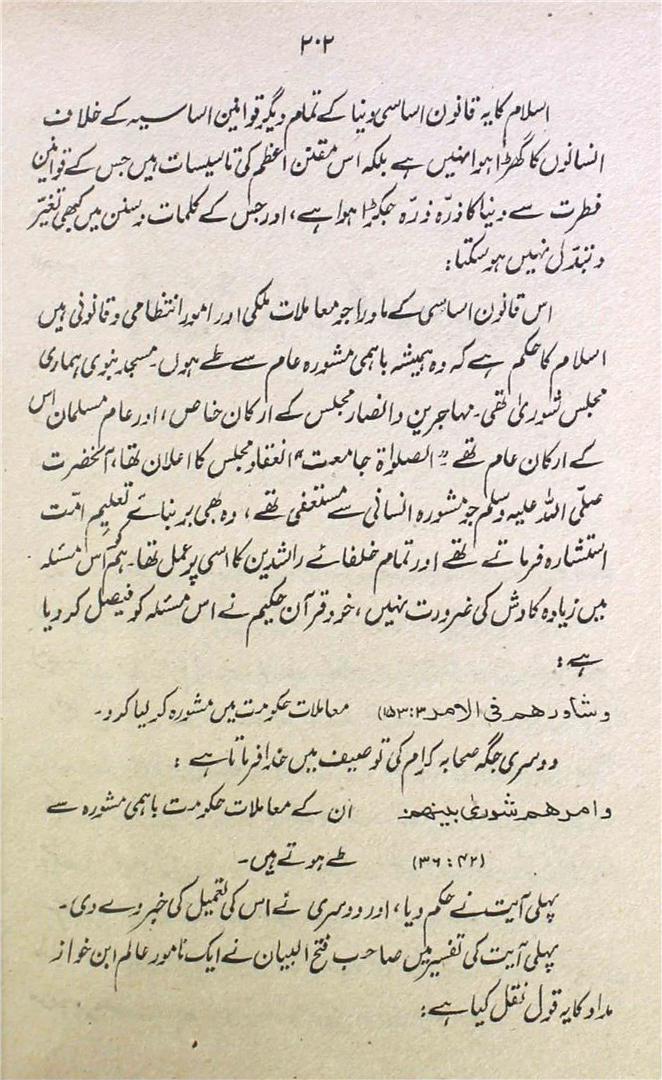 ۲۰۲
اسلام کا یہ قانون اساسی دنیا کے تمام دیگر قوانین اساسیہ کے خلاف
انسانوں کا گھڑا ہوا نہیں ہے بلکہ اس مقنن اعظم کی تاسیسات ہیں جس کے قوانین
فطرت سے دنیا کا ذرّہ ذرّہ جکڑا ہوا ہے، اور جس کے کلمات و سنن میں کبھی تغیّر
و تبدّل نہیں ہو سکتا:
اس قانون اساسی کے ماورا جو معاملات ملکی اور امور انتظامی و قانونی ہیں
اسلام کا حکم ہے کہ وہ ہمیشہ باہمی مشورہ عام سے طے ہوں۔ مسجد نبوی ہماری
مجلس شوریٰ تھی۔ مہاجرین و انصار مجلس کے ارکان خاص، اور عام مسلمان اس
کے ارکان عام تھے "الصلوٰۃ جامعت" انعقاد مجلس کا اعلان تھا، آنحضرت
صلّی اللہ علیہ وسلم جو مشورہ انسانی سے مستغنی تھے، وہ بھی بر بنائے تعلیم امّت
استشارہ فرماتے تھے اور تمام خلفائے راشدین کا اسی پر عمل تھا۔ ہم اس مسئلہ
میں زیادہ کاوش کی ضرورت نہیں، خود قرآن حکیم نے اس مسئلہ کو فیصل کر دیا
ہے:
و شاورھم فی الامر ۳:۱۵۳) معاملات حکومت میں مشورہ کر لیا کرو۔
دوسری جگہ صحابہ کرام کی توصیف میں خدا فرماتا ہے :
و امرھم شوریٰ بینھم: ان کے معاملات حکومت باہمی مشورہ سے
(۳۶:۴۲) طے ہوتے ہیں۔
پہلی آیت نے حکم دیا، اور دوسری نے اس کی تعمیل کی خبر دے دی۔
پہلی آیت کی تفسیر میں صاحب فتح البیان نے ایک نامور عالم ابن خواز
مداد کا یہ قول نقل کیا ہے: